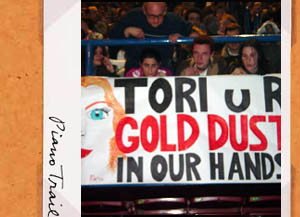 TORI U R
GOLD DUST
IN OUR HANDS
Piano Trail